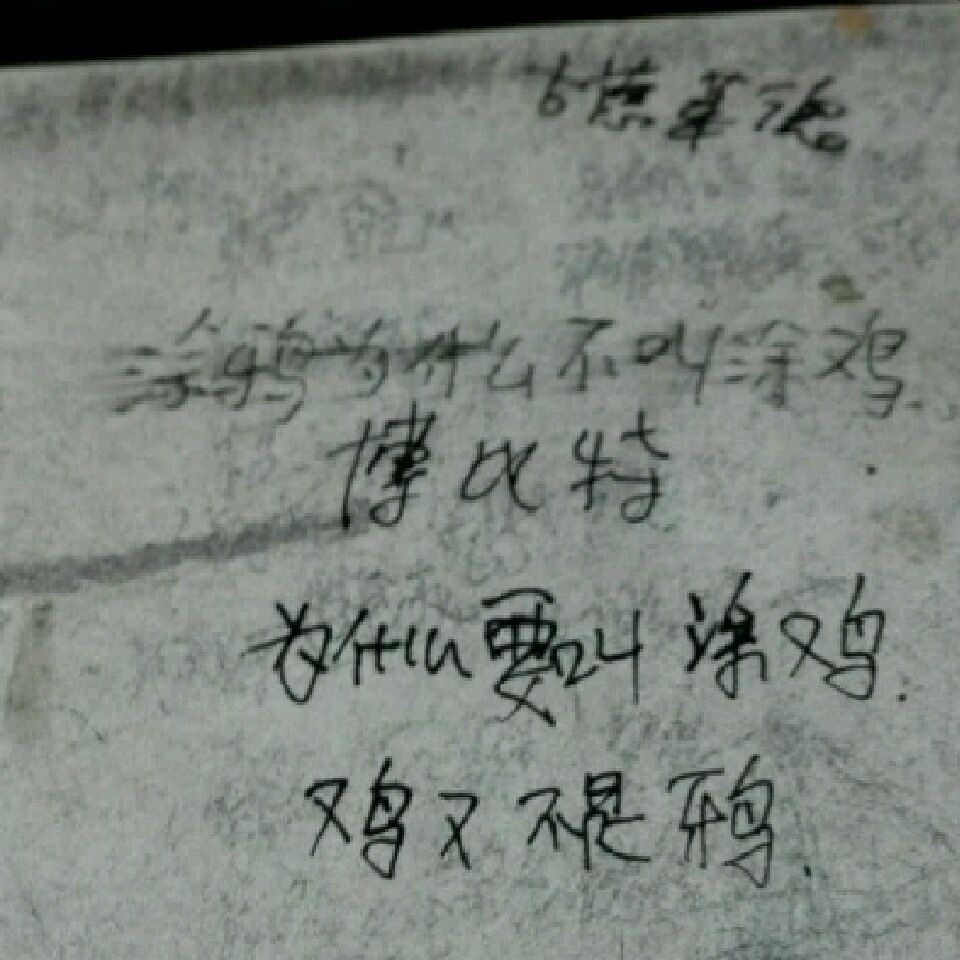 涂鸦为什么不叫涂鸡.
博比特
为什么要叫涂鸡.
鸡又不是鸦.